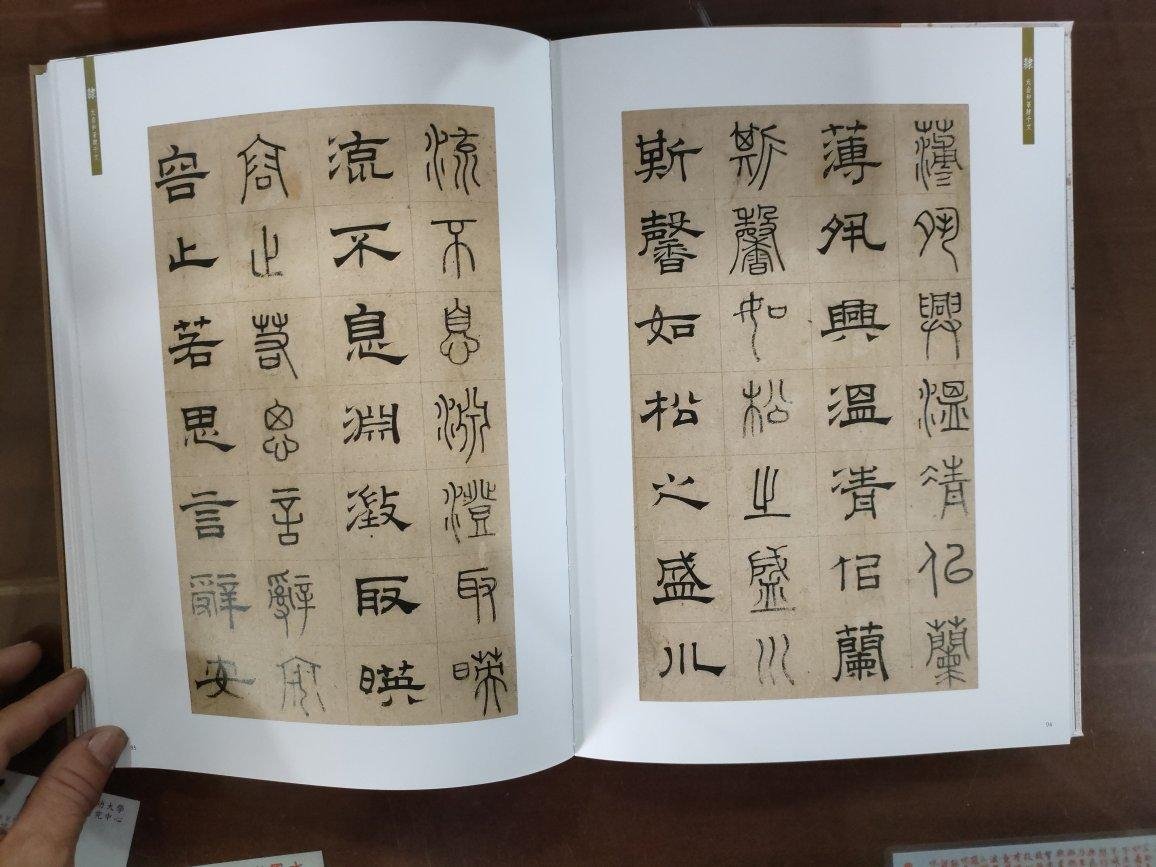 隸 元俞和篆隸千文
薄夙興溫清佀蘭
薄夙興溫清佀蘭
斯馨如松之盛川
斯馨如松之盛川
94
隸 元俞和篆隸千文
流不息淵澄取暎
流不息淵澂取暎
容止若思言辭安
容止若思言辭安
95
功大學
究中心